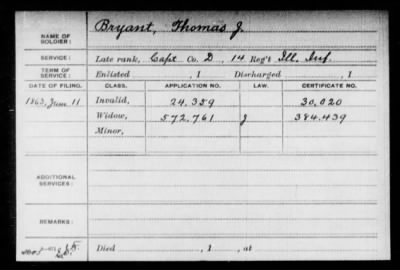 NAME OF SOLDIER: Bryant, Thomas J.
SERVICE: Late rank, Capt Co. D, 14 Reg't Ill. Inf.
TERM OF SERVICE: Enlisted , 1 Discharged , 1
DATE OF FILING. CLASS. APPLICATION NO. LAW. CERTIFICATE NO.
1863, June 11 Invalid, 24,359 30,020
Widow, 572,761 384,439
Minor,
ADDITIONAL SERVICES:
REMARKS:
Died , 1 , at